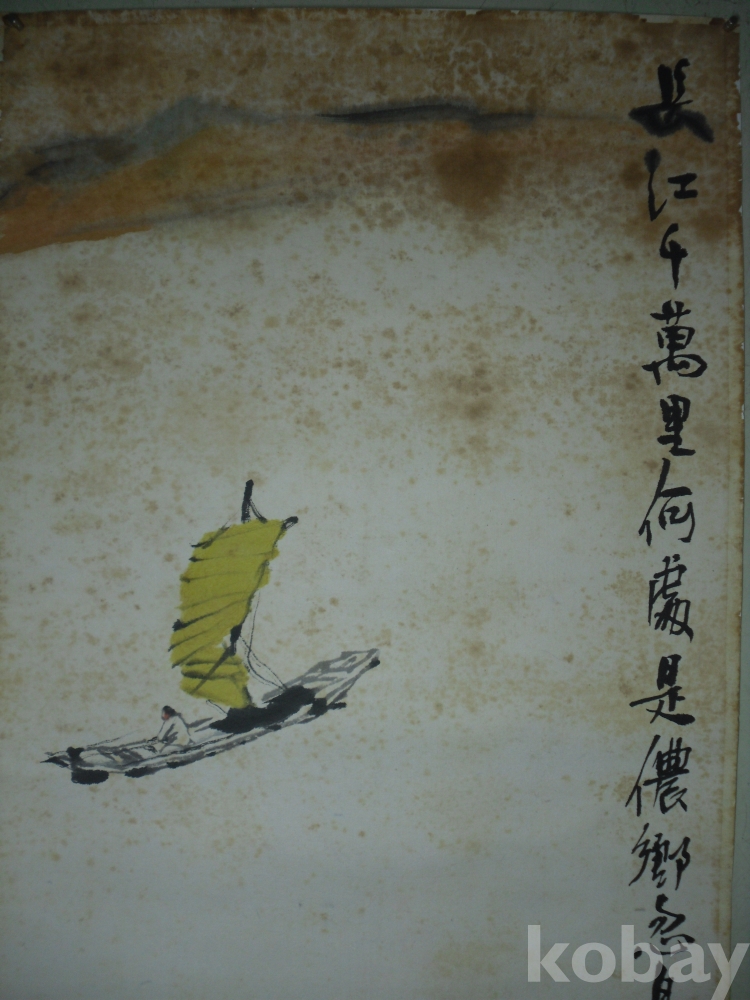 長江千萬里何處是儂鄉忽
kobay